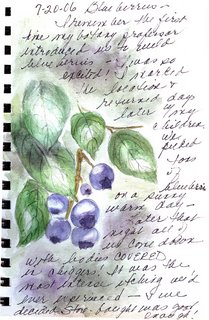 7-20-06 Blueberries -
I remember the first
time my botany professor
introduced us to wild
blueberries - I was so
excited! I marked
the location &
returned days
later & my
children
picked
tons
of
blueberries
on a sunny
warm day -
Later that
night all of
us came down
with bodies COVERED
in chiggers. It was the
most intense itching we'd
ever experienced - I've
decided store-bought was good
enough!